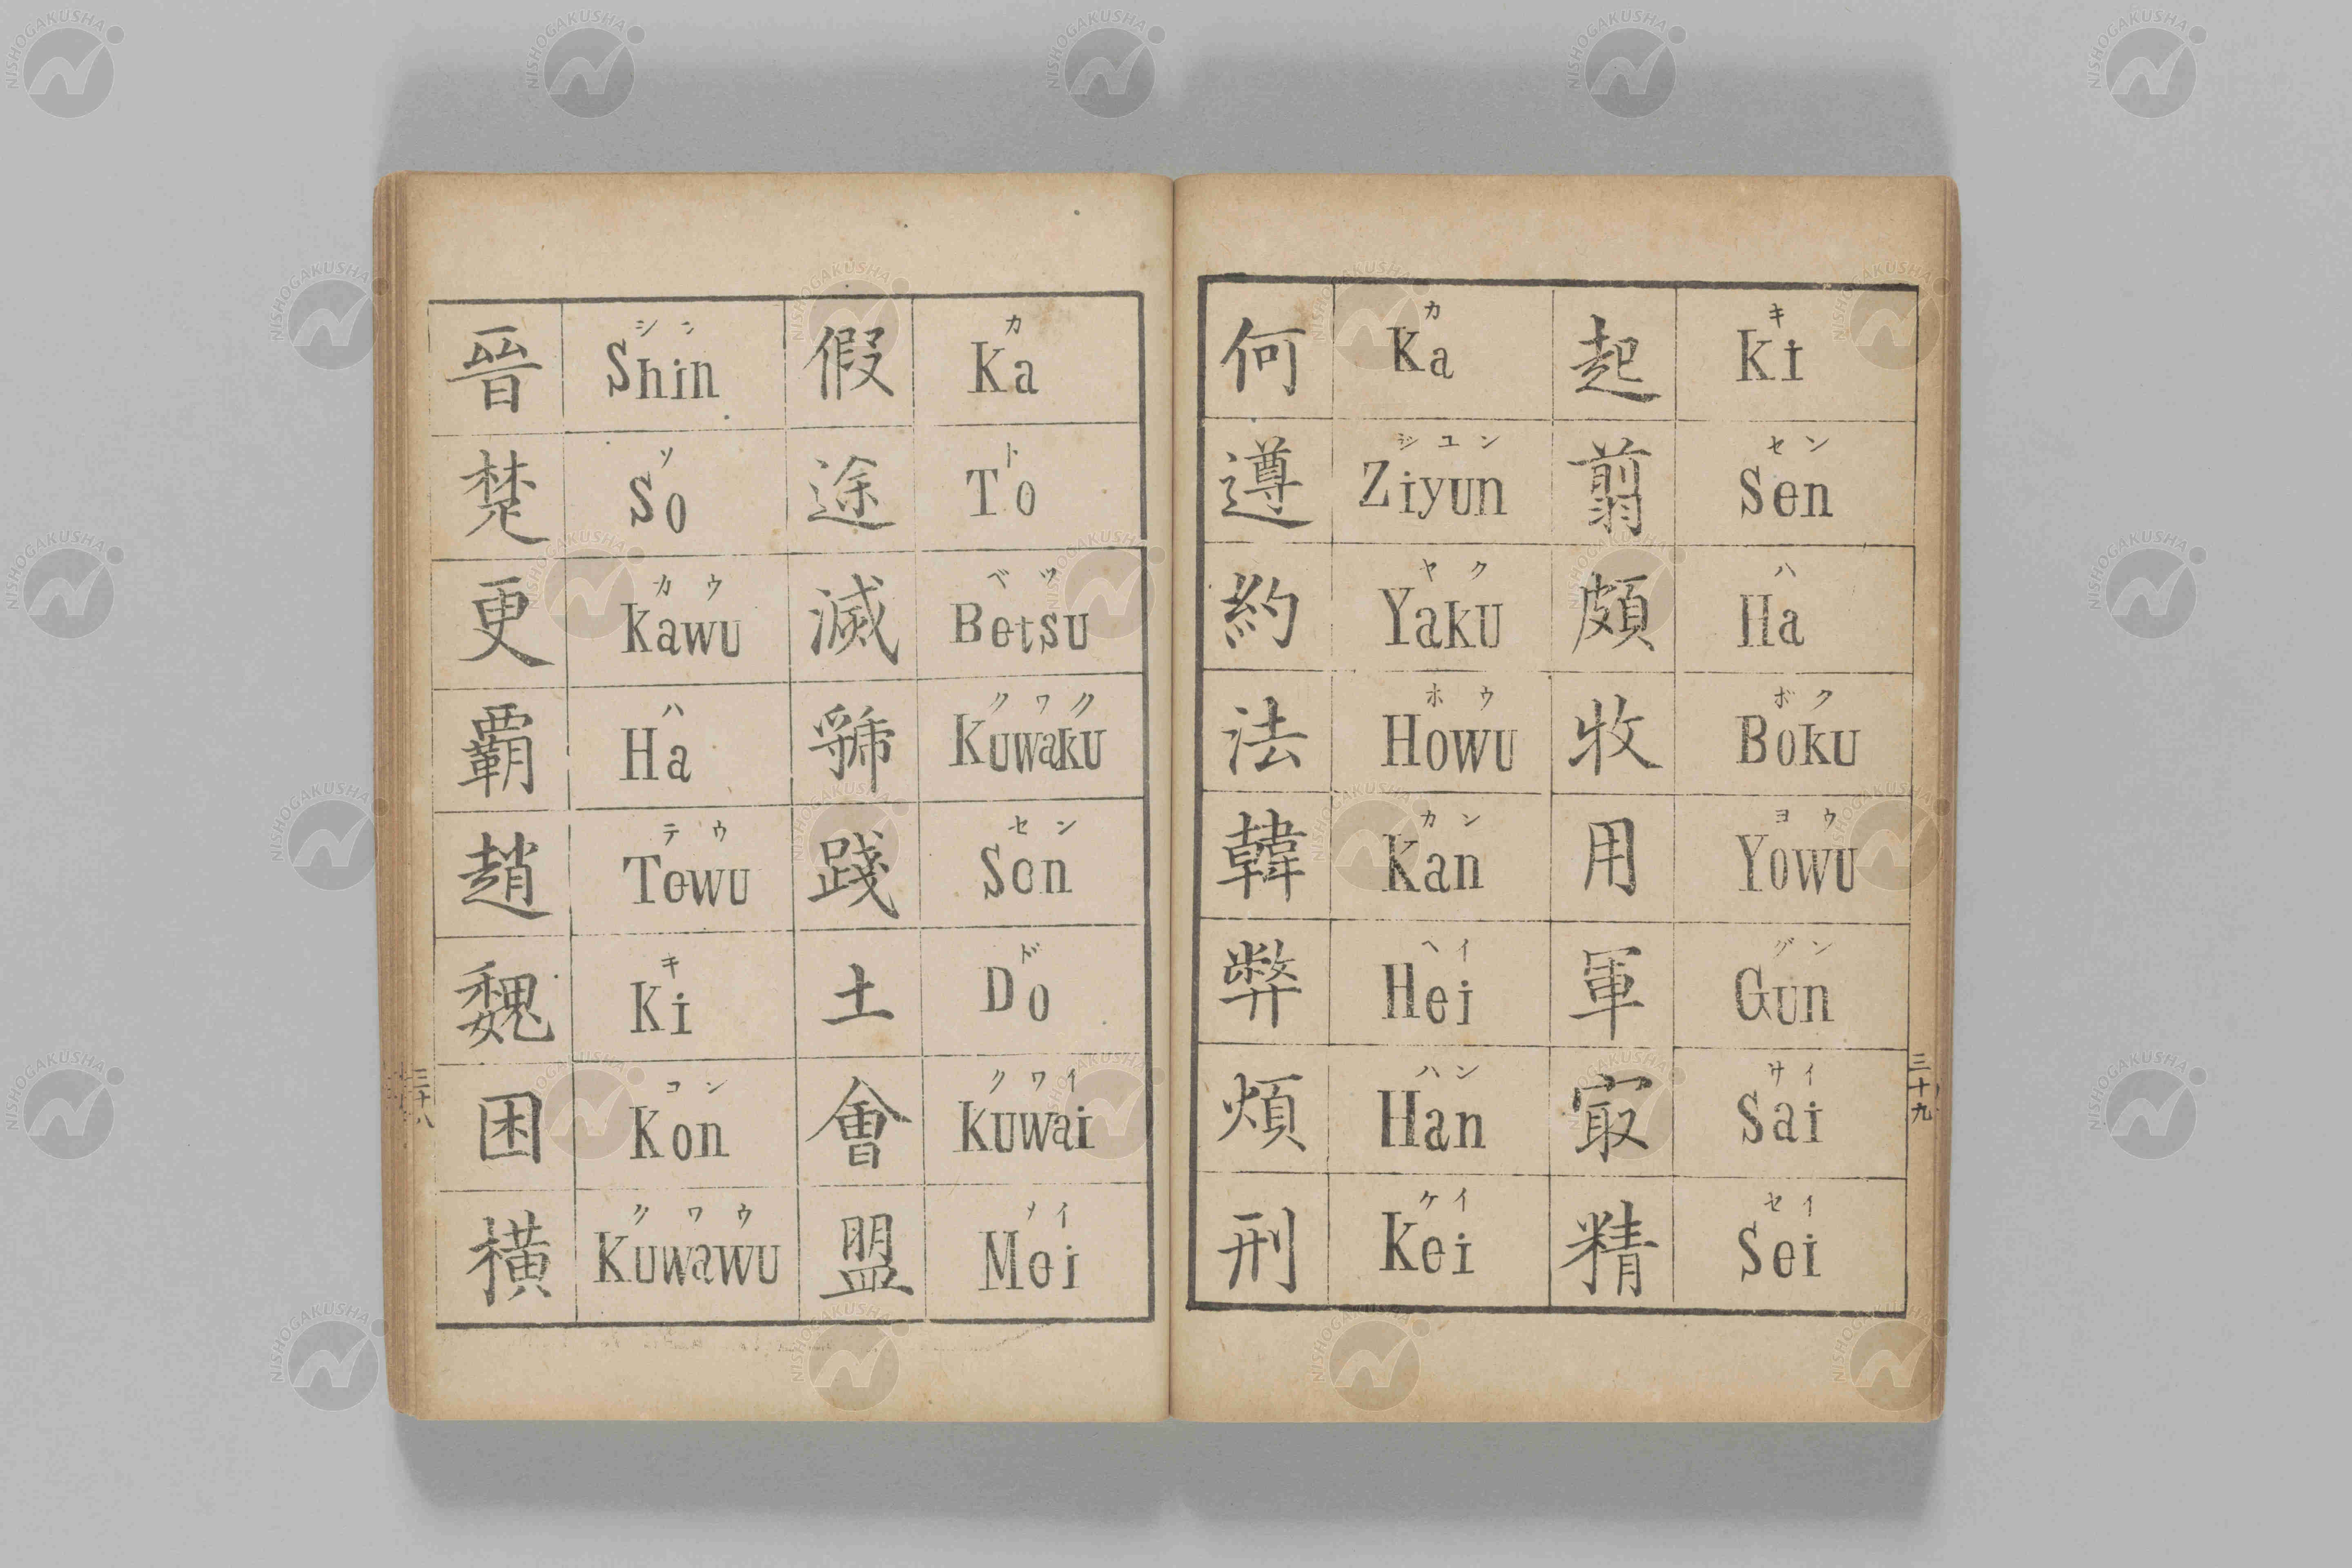 晉 シン Shin
楚 ソ So
更 カウ Kawu
覇 ハ Ha
趙 テウ Tewu
魏 キ Ki
困 コン Kon
橫 クワウ Kuwawu
假 カ Ka
途 ト To
滅 ベツ Betsu
虢 クワク Kuwaku
踐 セン Sen
土 ド Do
會 クワイ Kuwai
盟 メイ Mei
三十八
何 カ Ka
遵 ジユン Ziyun
約 ヤク Yaku
法 ホウ Howu
韓 カン Kan
弊 ヘイ Hei
煩 ハン Han
刑 ケイ Kei
起 キ Ki
翦 セン Sen
頗 ハ Ha
牧 ボク Boku
用 ヨウ Yowu
軍 グン Gun
㝡 サイ Sai
精 セイ Sei
三十九
NISHOGAKUSHA